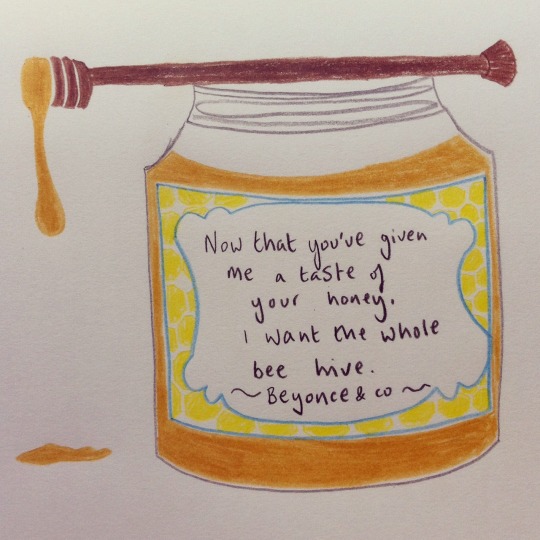 Now that you've given
me a taste of
your honey.
I want the whole
bee hive.
~Beyonce & co~